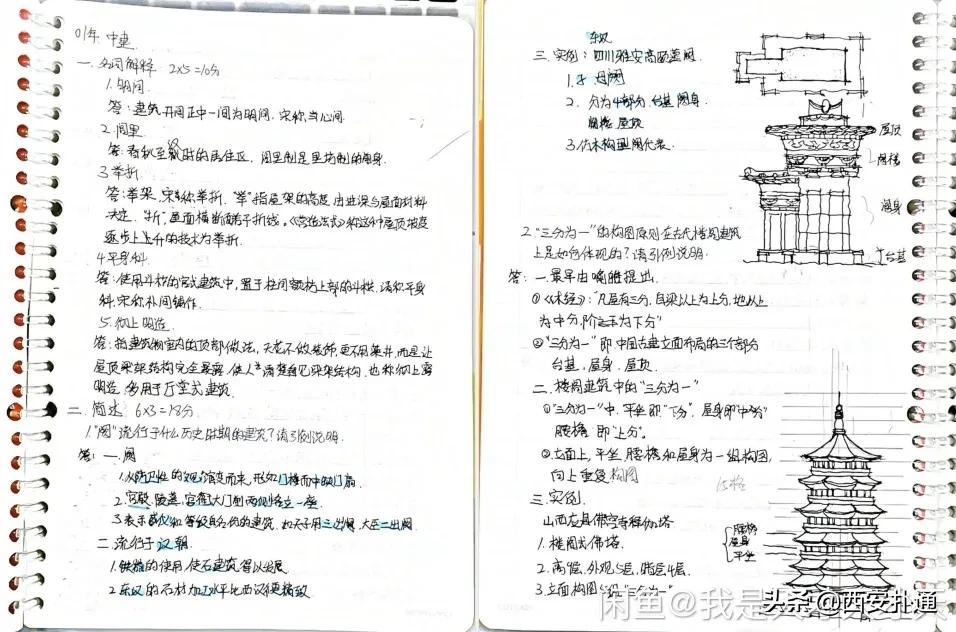 01年 中建
一. 名词解释 2x5=10分
1. 明间.
答: 建筑开间正中一间为明间. 宋称当心间.
2. 闾里.
答: 春秋至汉时的居住区, 闾里制是里坊制的前身.
3. 举折
答: 举架, 宋称举折. "举"指屋架的高度, 由进深与屋面材料
决定. "折", 屋面横断面若干折线.《营造法式》称这种屋顶坡度
逐步上升的技术为举折.
4. 平身科.
答: 使用斗栱的清式建筑中, 置于柱间额枋上部的斗栱, 清称平身
科. 宋称补间铺作.
5. 彻上明造
答: 指建筑物室内的顶部做法, 天花不做装饰, 更不用藻井, 而是让
屋顶梁架结构完全暴露, 使人清楚看见梁架结构, 也称彻上露
明造. 多用于厅堂式建筑.
二. 简述. 6x3=18分
1. "阙"流行于什么历史时期的建筑? 请引例说明.
答: 一. 阙
1. 从防卫性的"观"演变而来, 形如门楼而中缺门扇.
2. 宫殿, 陵墓, 官衙大门前两侧各立一座.
3. 表示威仪和等级名份的建筑. 如天子用三出阙, 大臣二出阙.
二. 流行于汉朝.
1. 铁器的使用使石建筑得以发展.
2. 东汉的石材加工水平比西汉更精致
东汉
三. 实例: 四川雅安高颐墓阙.
1. 子母阙
2. 分为4部分 台基 阙身
阙楼 屋顶
3. 仿木构型阙代表.
屋顶
阙楼
阙身
台基
2. "三分为一"的构图原则在古代楼阁建筑
上是如何体现的? 请引例说明.
答: 一. 最早由喻皓提出.
①《木经》: "凡屋有三分, 自梁以上为上分, 地以上
为中分, 阶为下分"
②"三分为一"即中国古建立面布局的三个部分
台基, 屋身, 屋顶.
二. 楼阁建筑中的"三分为一"
①"三分为一"中, 平坐即"下分", 屋身即"中分"
腰檐即"上分".
②立面上, 平坐, 腰檐和屋身为一组构图,
向上重复构图
三. 实例.
山西应县佛宫寺释迦塔
1. 楼阁式佛塔.
2. 高层, 外观5层, 暗层4层.
腰檐
屋身
平坐
闲鱼@我是
头条 @西安扑通